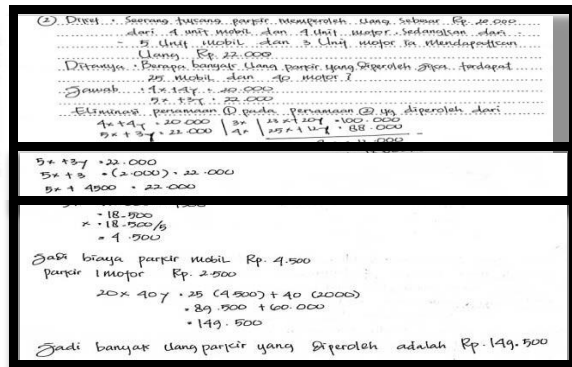 ② Diket : Seorang tukang parkir memperoleh uang sebesar Rp. 20.000
dari 4 unit mobil dan 4 unit motor. Sedangkan dari
5 unit mobil dan 3 unit motor ia mendapatkan
uang Rp. 22.000
Ditanya : Berapa banyak uang parkir yang diperoleh jika terdapat
25 mobil dan 40 motor ?
Jawab : 4x + 4y = 20.000
5x + 3y = 22.000
Eliminasi persamaan ① pada persamaan ② yg diperoleh dari
4x + 4y = 20.000 | 3x | + 20y = 100.000
5x + 3y = 22.000 | 4x | 25x + 12y = 88.000
5x + 3y = 22.000
5x + 3 = (2.000) = 22.000
5x + 4500 = 22.000
= 18.500
x = 18.500/5
= 4.500
Jadi biaya parkir mobil Rp. 4.500
parkir 1 motor Rp. 2.500
20x 40y = 25 (4500) + 40 (2000)
= 89.500 + 60.000
= 149.500
Jadi banyak uang parkir yang diperoleh adalah Rp. 149.500